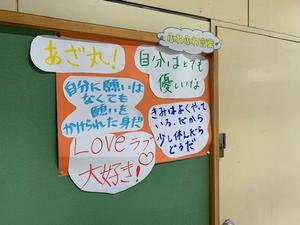 ふわふわ言葉
あざ丸!
自分はとても
優しいな
自分に願いは
なくても
願いを
かけられた身だ
きみはよくやって
いる。だから
少し休んだら
どうだ
Love ラブ
大好き!